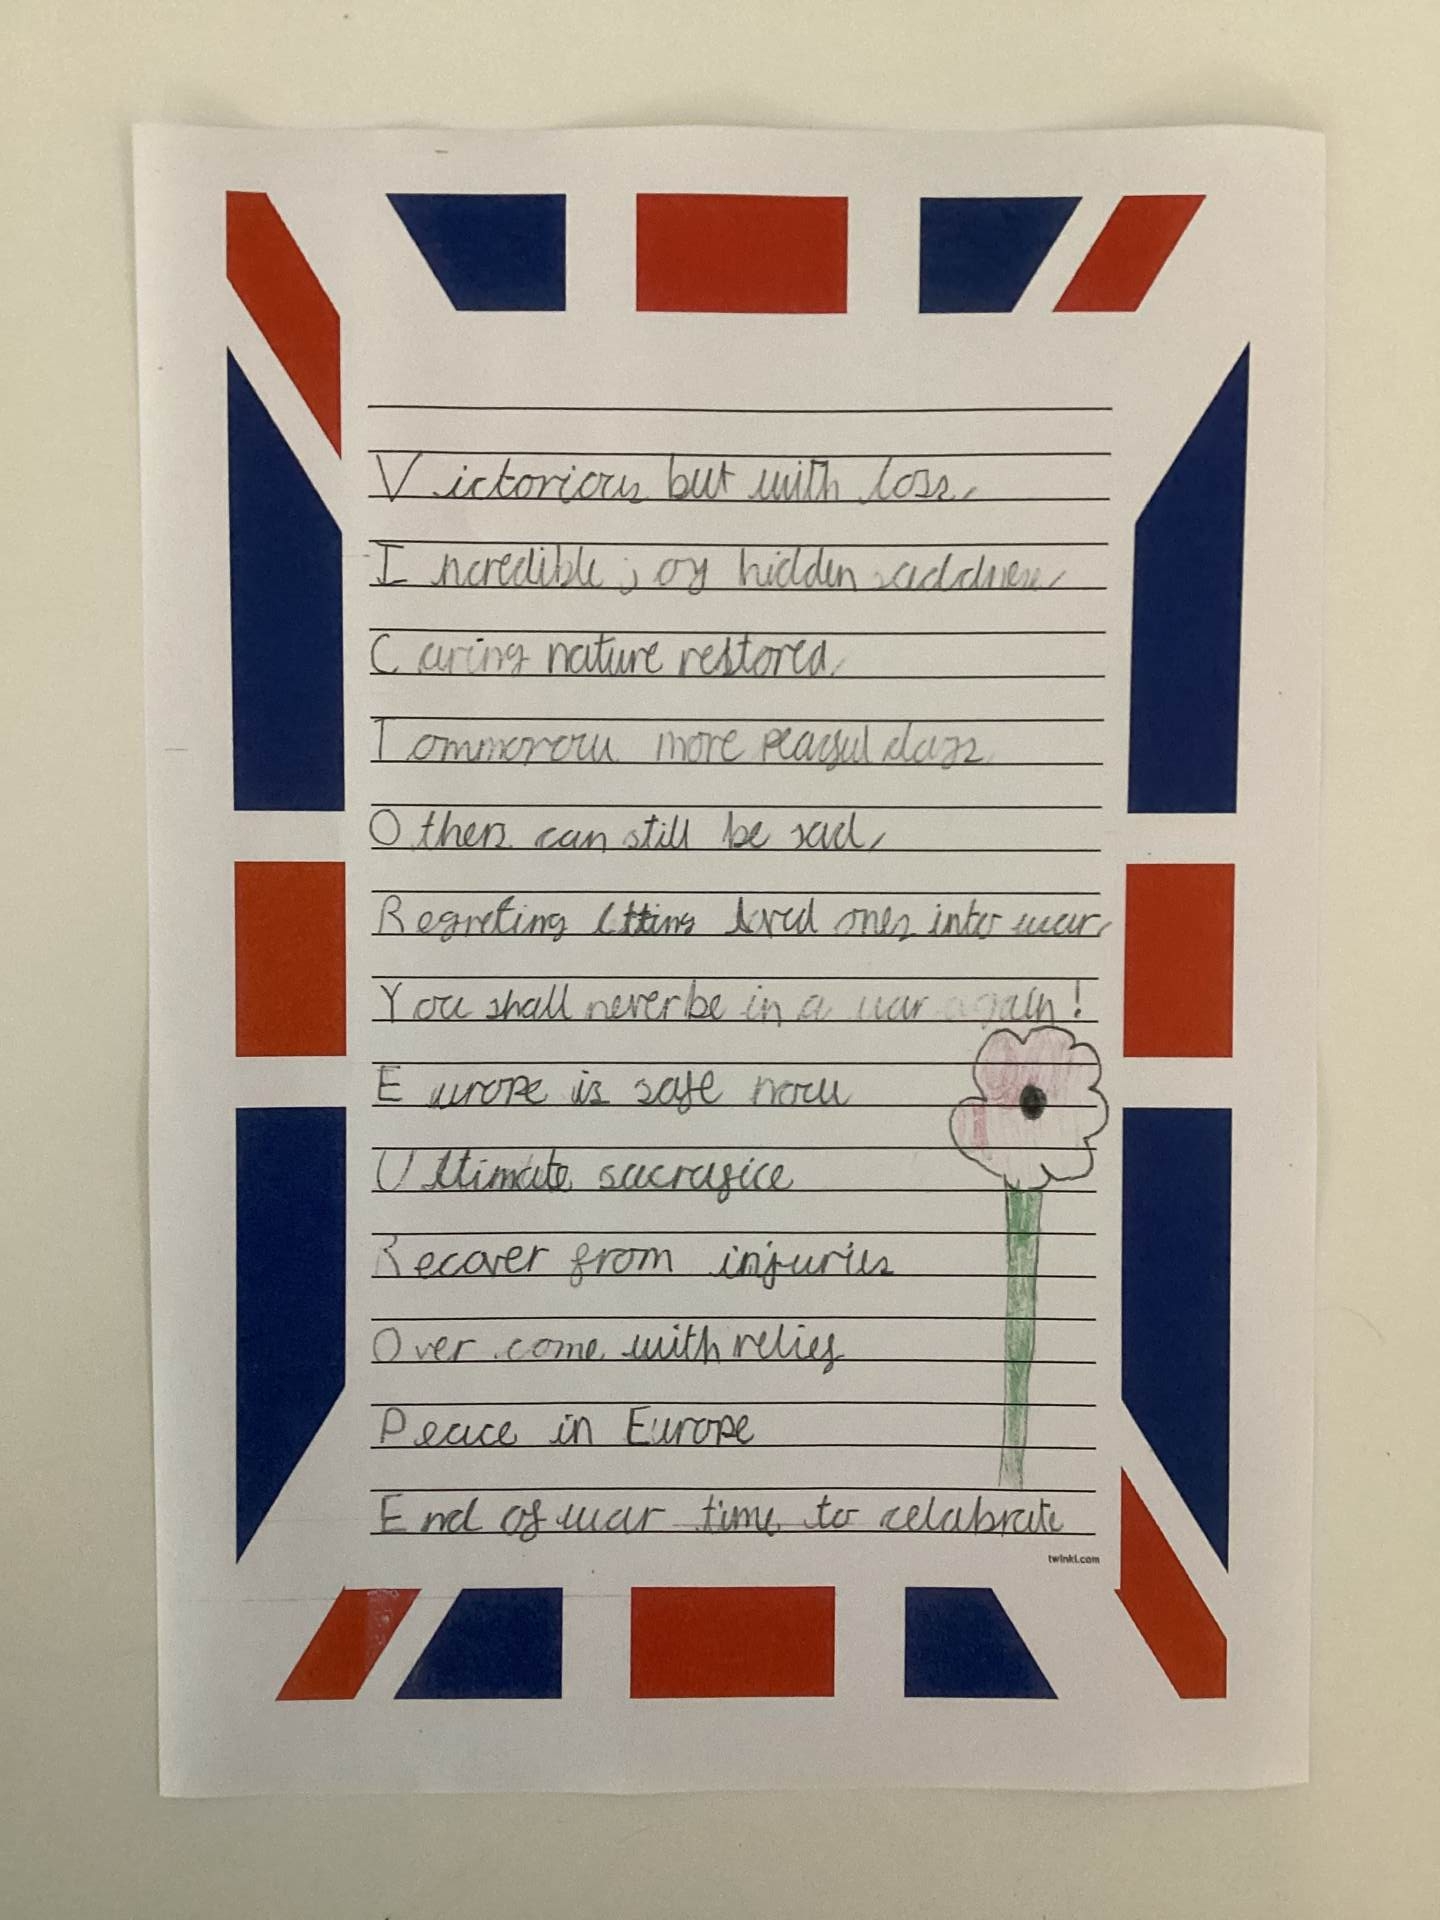 Victorious but with loss,
Incredible joy hidden saddness,
Caring nature restored,
Tommorow more peacful days
Others can still be sad,
Regreting letting loved ones into war,
You shall never be in a war again!
Europe is safe now
Ultimate sacrafice
Recover from injuries
Over come with relief
Peace in Europe
End of war time to celabrate
twinkl.com